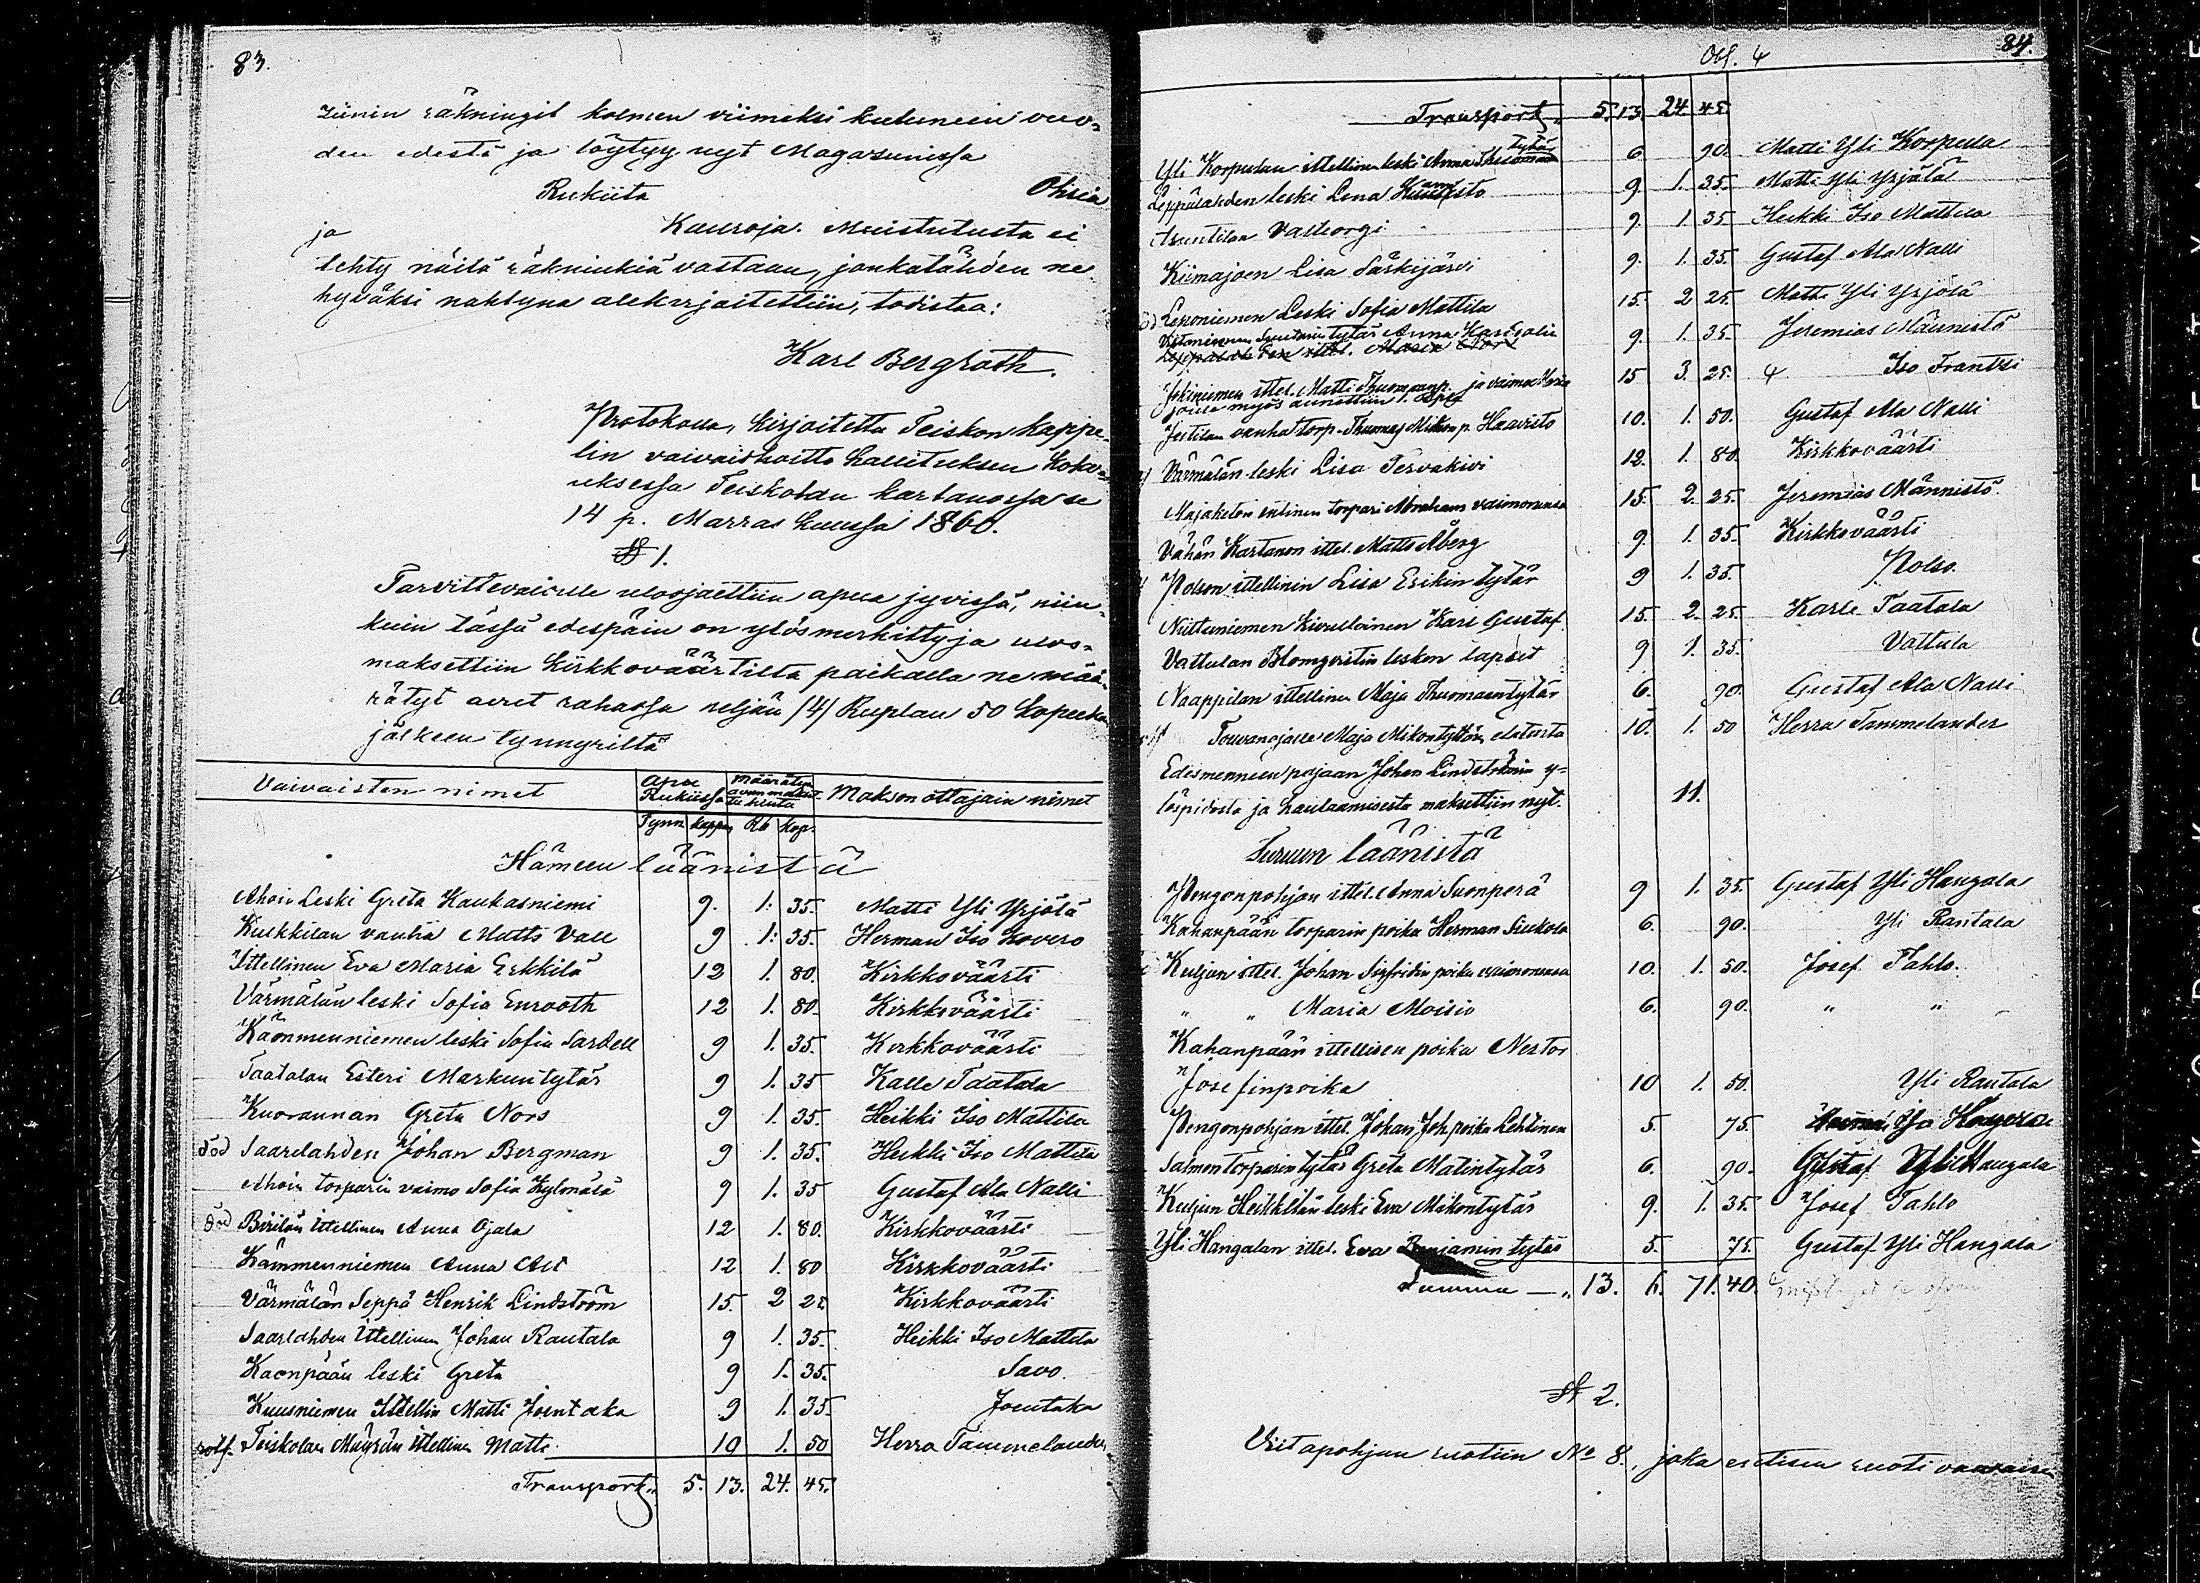 83.
zunin räkningit kolmen viimeksi kuluneen vuo-
den edestä ja löytyy nyt Magasunissa
Rukiita Ohria
ja Kauroja. Muistutusta ei
tehty näitä räkninkiä vastaan, jonkatähden ne
hyväksi nähtynä alekirjoitettiin, todistaa:
Karl Bergroth.
Protokolla, kirjoitettu Teiskon kappe-
lin vaivaishoito hallituksen koko-
uksessa Teiskolan kartanossa se
14 p. Marras kuussa 1860.
§ 1.
Tarvittevaisille uloosjaettiin apua jyvissä, niin-
kuin tässä edespäin on ylösmerkitty ja ulos-
maksettiin Kirkkoväärtiltä paikalla ne mää-
rätyt avut rahassa neljän /4/ Ruplan 50 Kopeekan
jälkeen tynnyriltä
Vaivaisten nimet Apu Rukiissa Määrätyn avun maksu Makson ottajain nimet
Tynn kappa Rb kop.
Hämeen läänistä
Ahois Leski Greta Kaukasniemi 9. 1. 35. Matti Yli Yrjölä
Kulkkilan vanha Matts Vall 9 1. 35. Herman Iso Kovero
Ittellinen Eva Maria Erkkilä 12 1. 80. Kirkkoväärti
Värmälän leski Sofia Enrooth 12 1. 80. Kirkkoväärti
Kämmenniemen leski Sofia Sardell 9 1. 35. Kirkkoväärti
Taatalan Esteri Markuntytär 9 1. 35 Kalle Taatala
Kuorannan Greta Nors 9 1. 35. Heikki Iso Mattila
död Saarlahden Johan Bergman 9 1. 35. Heikki Iso Mattila
Ahois torparin vaimo Sofia Kylmälä 9 1. 35 Gustaf Ala Nalli
död Birilän Ittellinen Anna Ojala 12 1. 80. Kirkkoväärti
Kämmenniemen Anna Alt 12 1. 80 Kirkkoväärti
Värmälän Seppä Henrik Lindström 15. 2 25 Kirkkoväärti
Saarlahden Ittellinen Johan Rautala 9 1. 35. Heikki Iso Mattila
Kaonpään leski Greta 9 1. 35. Savo.
Kuusniemen Ittellin Matti Jountaka 9 1. 35. Jountaka
Teiskolan Mäyrän Ittellinen Matti 10 1. 50 Herra Tammelander
Transport 5. 13. 24. 45.
Obs. 4
84.
Transport 5. 13. 24. 45.
Yli Korpulan ittellinen leski Anna tytär 6 90. Matti Yli Korpula
Leppälahden leski Lena 9. 1. 35. Matti Yli Yrjölä
Asuntilan Valborgi 9. 1. 35 Heikki Iso Mattila
Kiimajoen Lisa Särkijärvi 9. 1. 35. Gustaf Ala Nalli
Leponiemen Leski Sofia Mattila 15. 2 25. Matti Yli Yrjölä
tytär Anna Kar 9. 1. 35. Jeremias Männistö
Jokiniemen ittel. Matti Thuomaanp. ja vaimo Maria 15 3. 25. 4 Iso Frantsi
joille myös annettiin 1.
Jutilan vanha torp. Thuomas Mikon p. Haavisto 10. 1. 50. Gustaf Ala Nalli
Värmälän leski Lisa Tervakivi 12. 1. 80. Kirkkoväärti
Majaketon entinen torpari Abraham vaimonensa 15. 2. 25. Jeremias Männistö
Vähän Kartanon ittel. Matts Åberg 9. 1. 35. Kirkkoväärti
Polson ittellinin Lisa Erikin tytär 9 1. 35. Polso
Niittuniemen Kivulloinen Karl Gustaf 15. 2. 25. Karle Taatala
Vattulan Blomqvistin lesken lapset 9 1. 35. Vattula
Naappilan ittellinen Maja Thuomaantytär 6. 90. Gustaf Ala Nalli
Maja Mikontyttön elatusta 10. 1. 50 Herra Tammelander
Edesmenneen pojaan Johan Lindströmin y-
löspidosta ja hautaamisesta maksettiin nyt. 11.
Turuun läänistä
Pengonpohjan ittel. Anna Suonperä 9 1. 35. Gustaf Yli Hangala
Kahanpään torparin poika Herman Siukola 6. 90. Yli Rantala
Kuljun ittel. Johan Sigfridin poika vaimonensa 10. 1. 50. Josef Tahlo.
" " Maria Moisio 6. 90. " "
Kahanpään ittellisen poika Nestor
Josefinpoika 10 1. 50. Yli Rautala
Pengonpohjan ittel. Johan Joh. poika Lehtinen 5. 75.
Salmen torparin tytär Greta Matintytär 6. 90. Gustaf Yli Hangala
Kuljun Heikkilän leski Eva Mikontytär 9. 1. 35. Josef Tahlo
Yli Hangalan ittel. Eva Benjamin tytär 5. 75. Gustaf Yli Hangala
Summa — 13. 6. 71. 40.
§ 2.
Viitapohjan ruotiin No 8., joka entisen ruoti vaivaisen